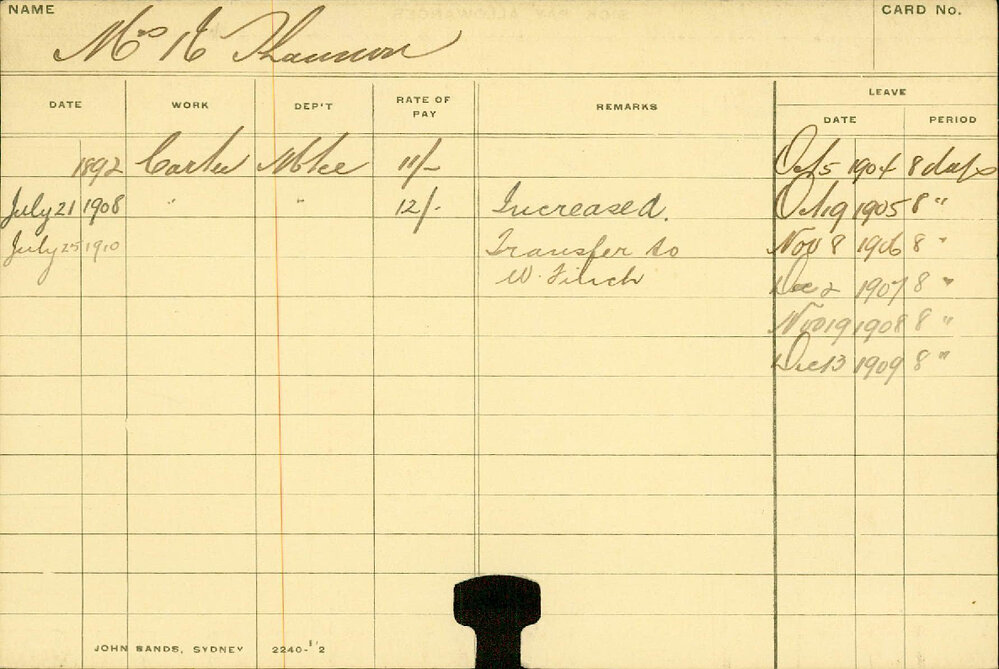 NAME
CARD No.
Mrs E Shannon
DATE WORK DEP'T RATE OF PAY REMARKS LEAVE
DATE PERIOD
1892 Carter 11/- Oct 5 1904 8 days
July 21 1908 " " 12/- Increased. Oct 19 1905 8 "
July 25 1910 Transfer to Nov 8 1906 8 "
W. Finch Dec 2 1907 8 "
Nov 19 1908 8 "
Dec 13 1909 8 "
JOHN SANDS, SYDNEY 2240-